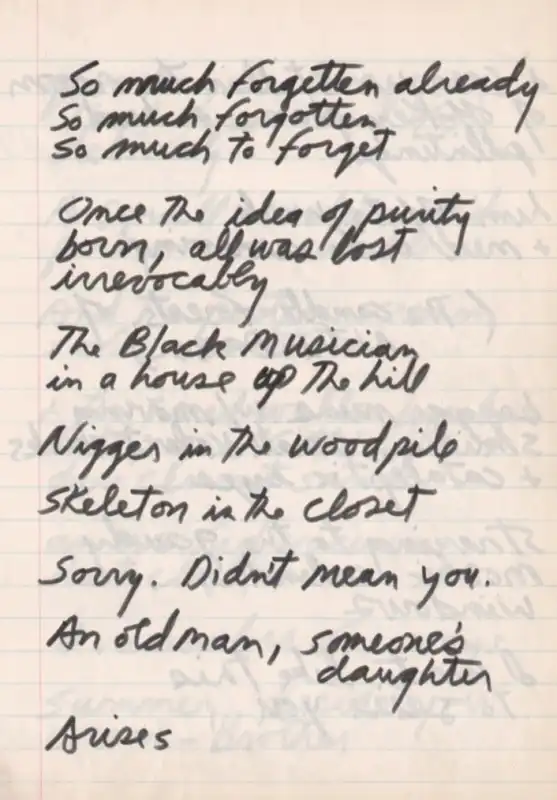 So much forgotten already
So much forgotten
So much to forget
Once the idea of purity
born, all was lost
irrevocably
The Black Musician
in a house up the hill
Nigger in the woodpile
Skeleton in the closet
Sorry. Didn't mean you.
An old man, someone's
daughter
Arises